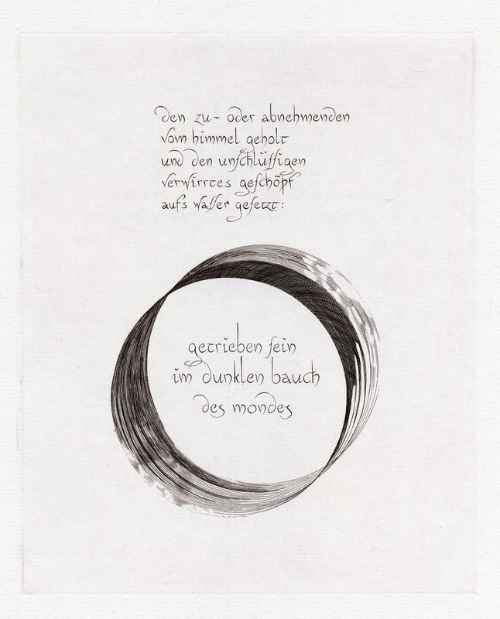 den zu- oder abnehmenden
vom himmel geholt
und den unſchlüſſigen
verwirrtes geſchöpf
aufs waſſer geſetzt:
getrieben ſein
im dunklen bauch
des mondes